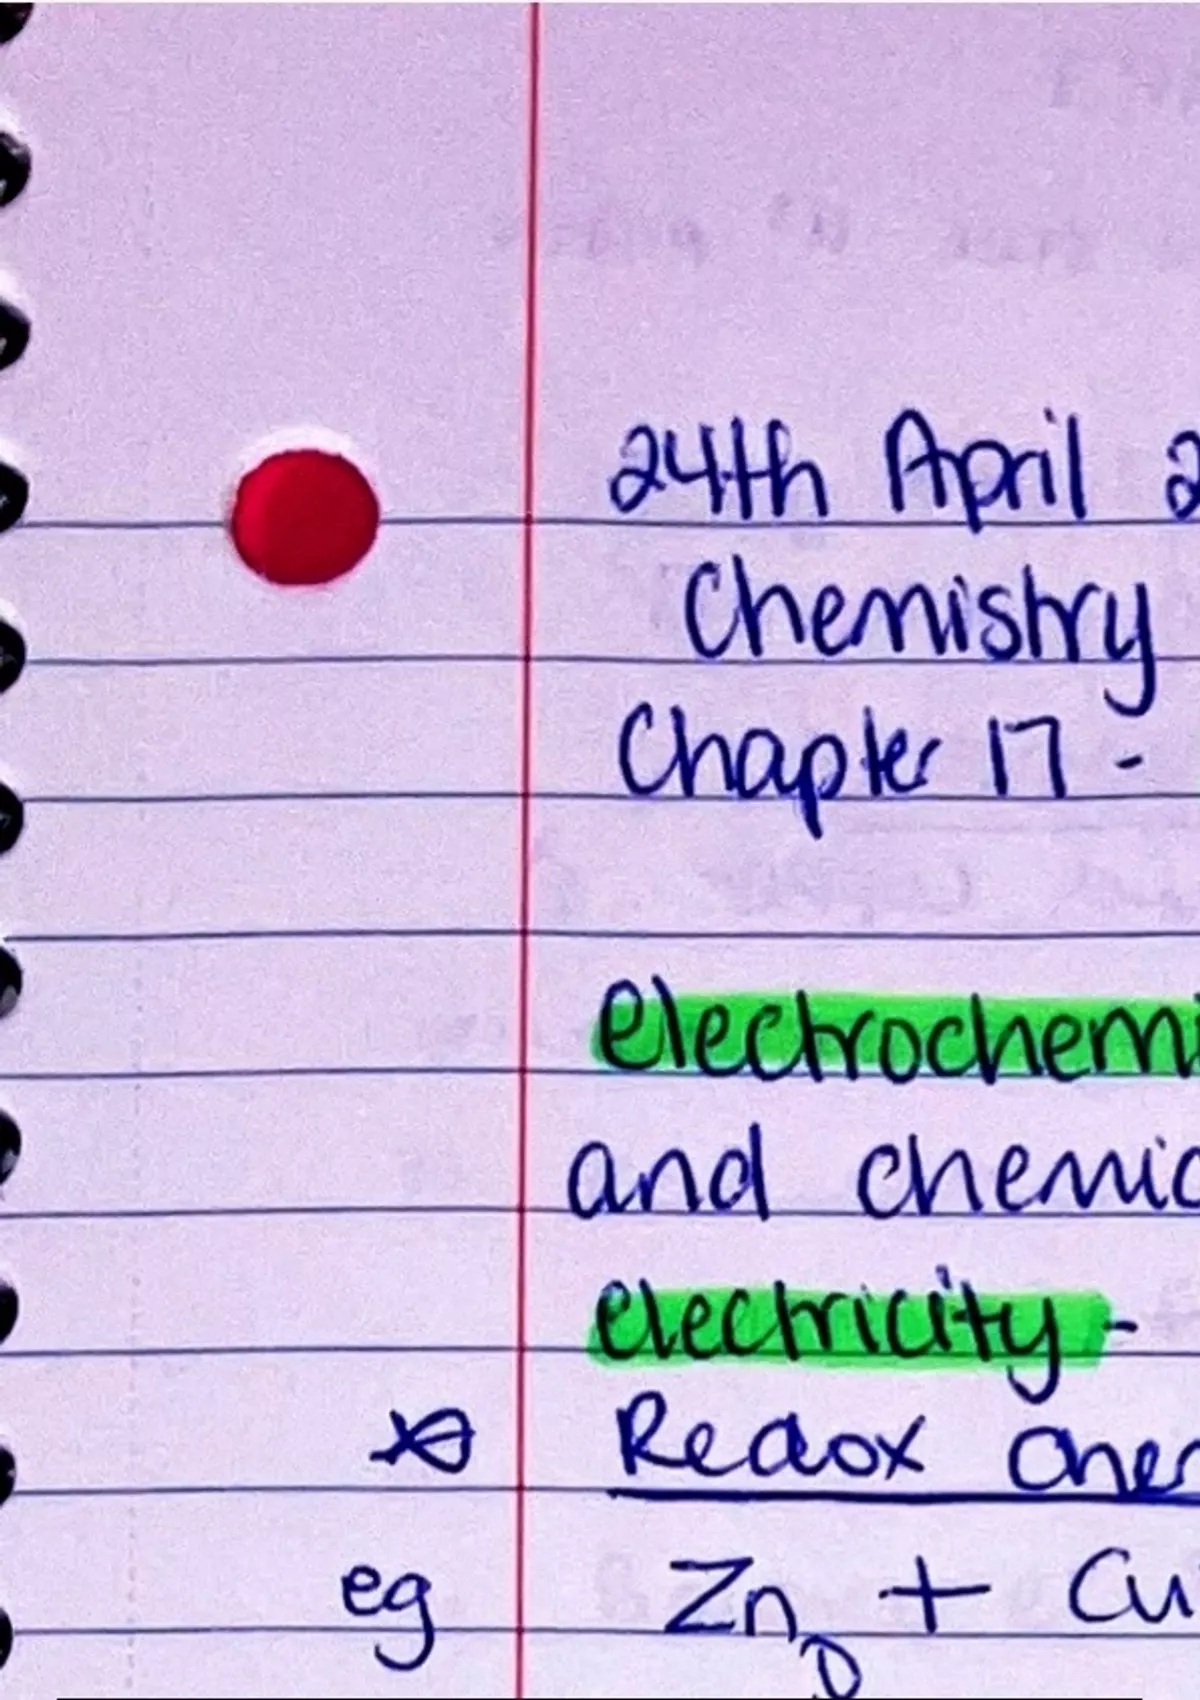 24th April 2
Chemistry
Chapter 17 -
electrochemi
and chemic
electricity -
Redox
eg Zn + Cu
0